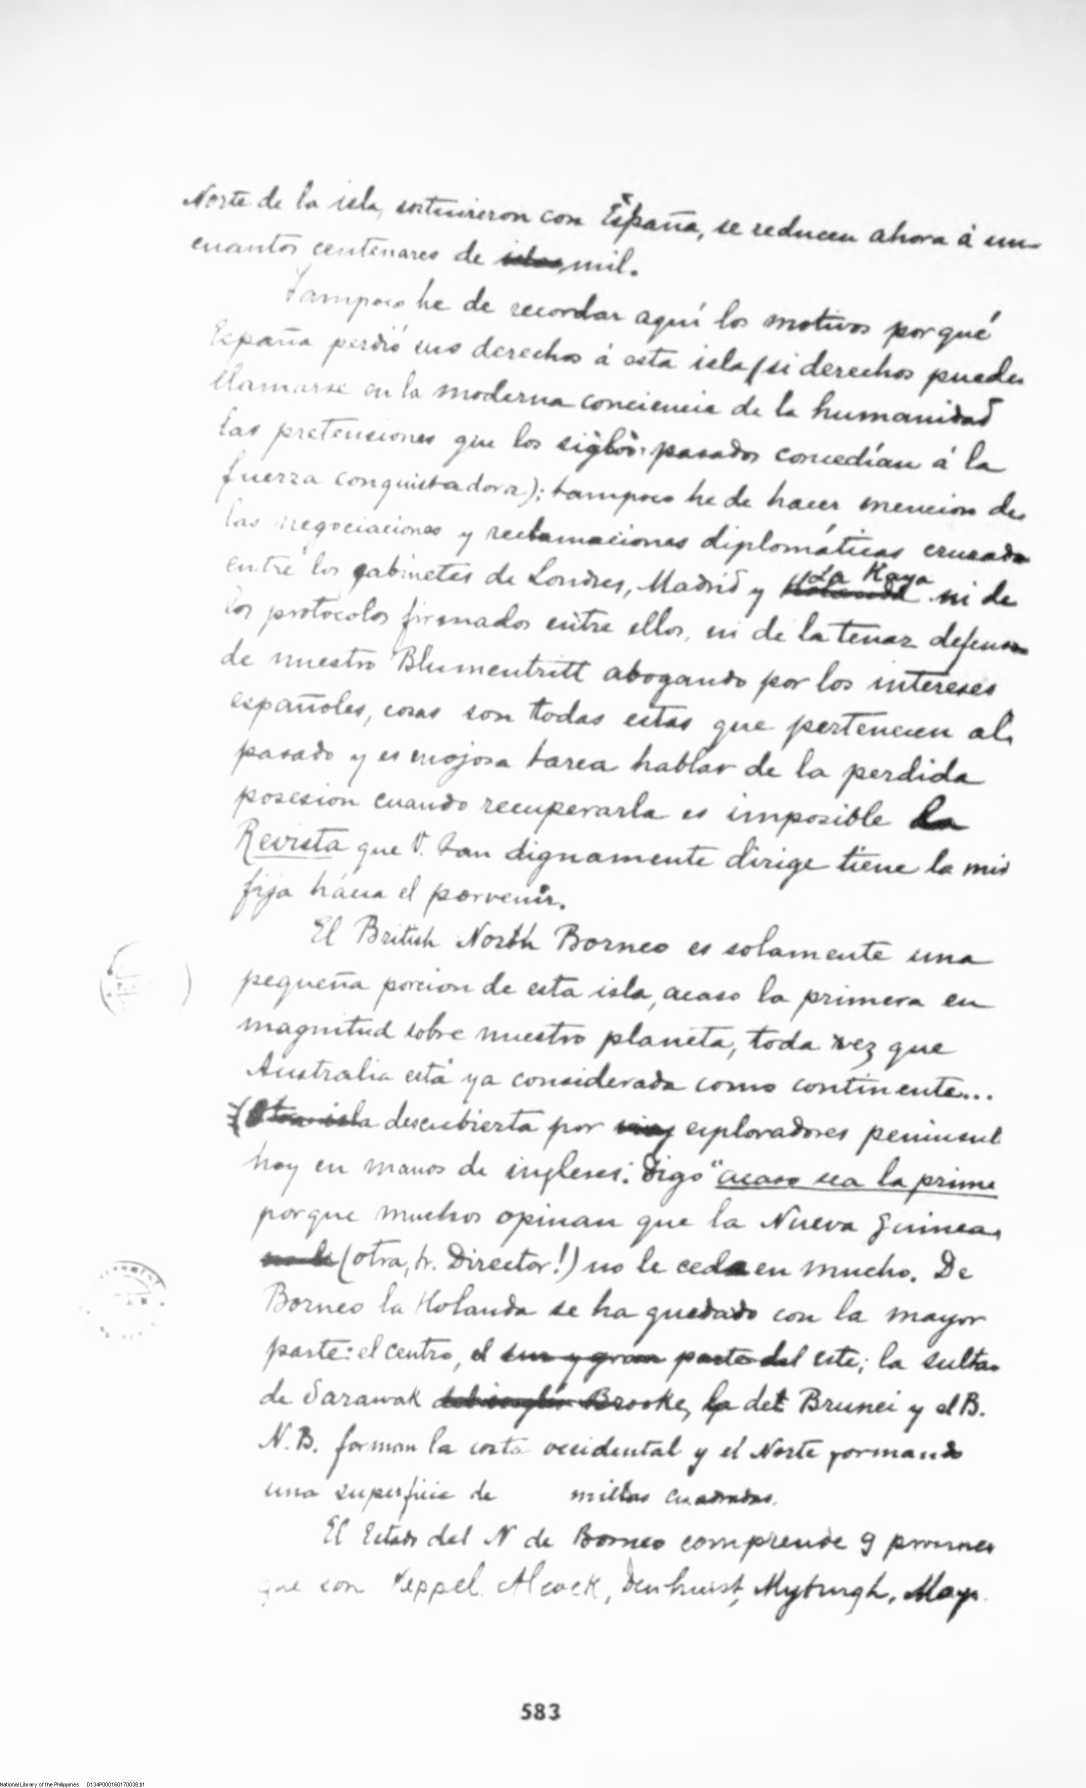 Norte de la isla, sostuvieron con España, se reducen ahora á un
cuantos centenares de islas, mil.
Tampoco he de recordar aquí los motivos por qué
España perdió sus derechos á esta isla (si derechos pueden
llamarse en la moderna conciencia de la humanidad
las pretensiones que los siglos pasados concedían á la
fuerza conquistadora); tampoco he de hacer mencion de
las negociaciones y reclamaciones diplomáticas cruzada
entre los gabinetes de Londres, Madrid y Holanda La Haya ni de
los protocolos firmados entre ellos, ni de la tenaz defensa
de nuestro Blumentritt abogando por los intereses
españoles, cosas son todas estas que pertenecen al
pasado y es enojosa tarea hablar de la perdida
posesion cuando recuperarla es imposible La
Revista que V. tan dignamente dirige tiene la mir
fija hácia el porvenir.
El British North Borneo es solamente una
pequeña porcion de esta isla, acaso la primera en
magnitud sobre nuestro planeta, toda vez que
Australia está ya considerada como continente...
(Otra isla descubierta por exploradores peninsul
hoy en manos de ingleses: digo "acaso sea la prime
porque muchos opinan que la Nueva Guinea
no le (otra, Sr. Director!) no le cede en mucho. De
Borneo la Holanda se ha quedado con la mayor
parte: el centro, el sur y gran parte del este; la sulta
de Sarawak del inglés Brooke, la del Brunei y el B.
N. B. forman la costa occidental y el Norte formando
una superficie de millas cuadradas.
El Estado del N de Borneo comprende 9 provinces
que son Keppel, Alcock, Denhurst, Myburgh, Mayn
583
National Library of the Philippines